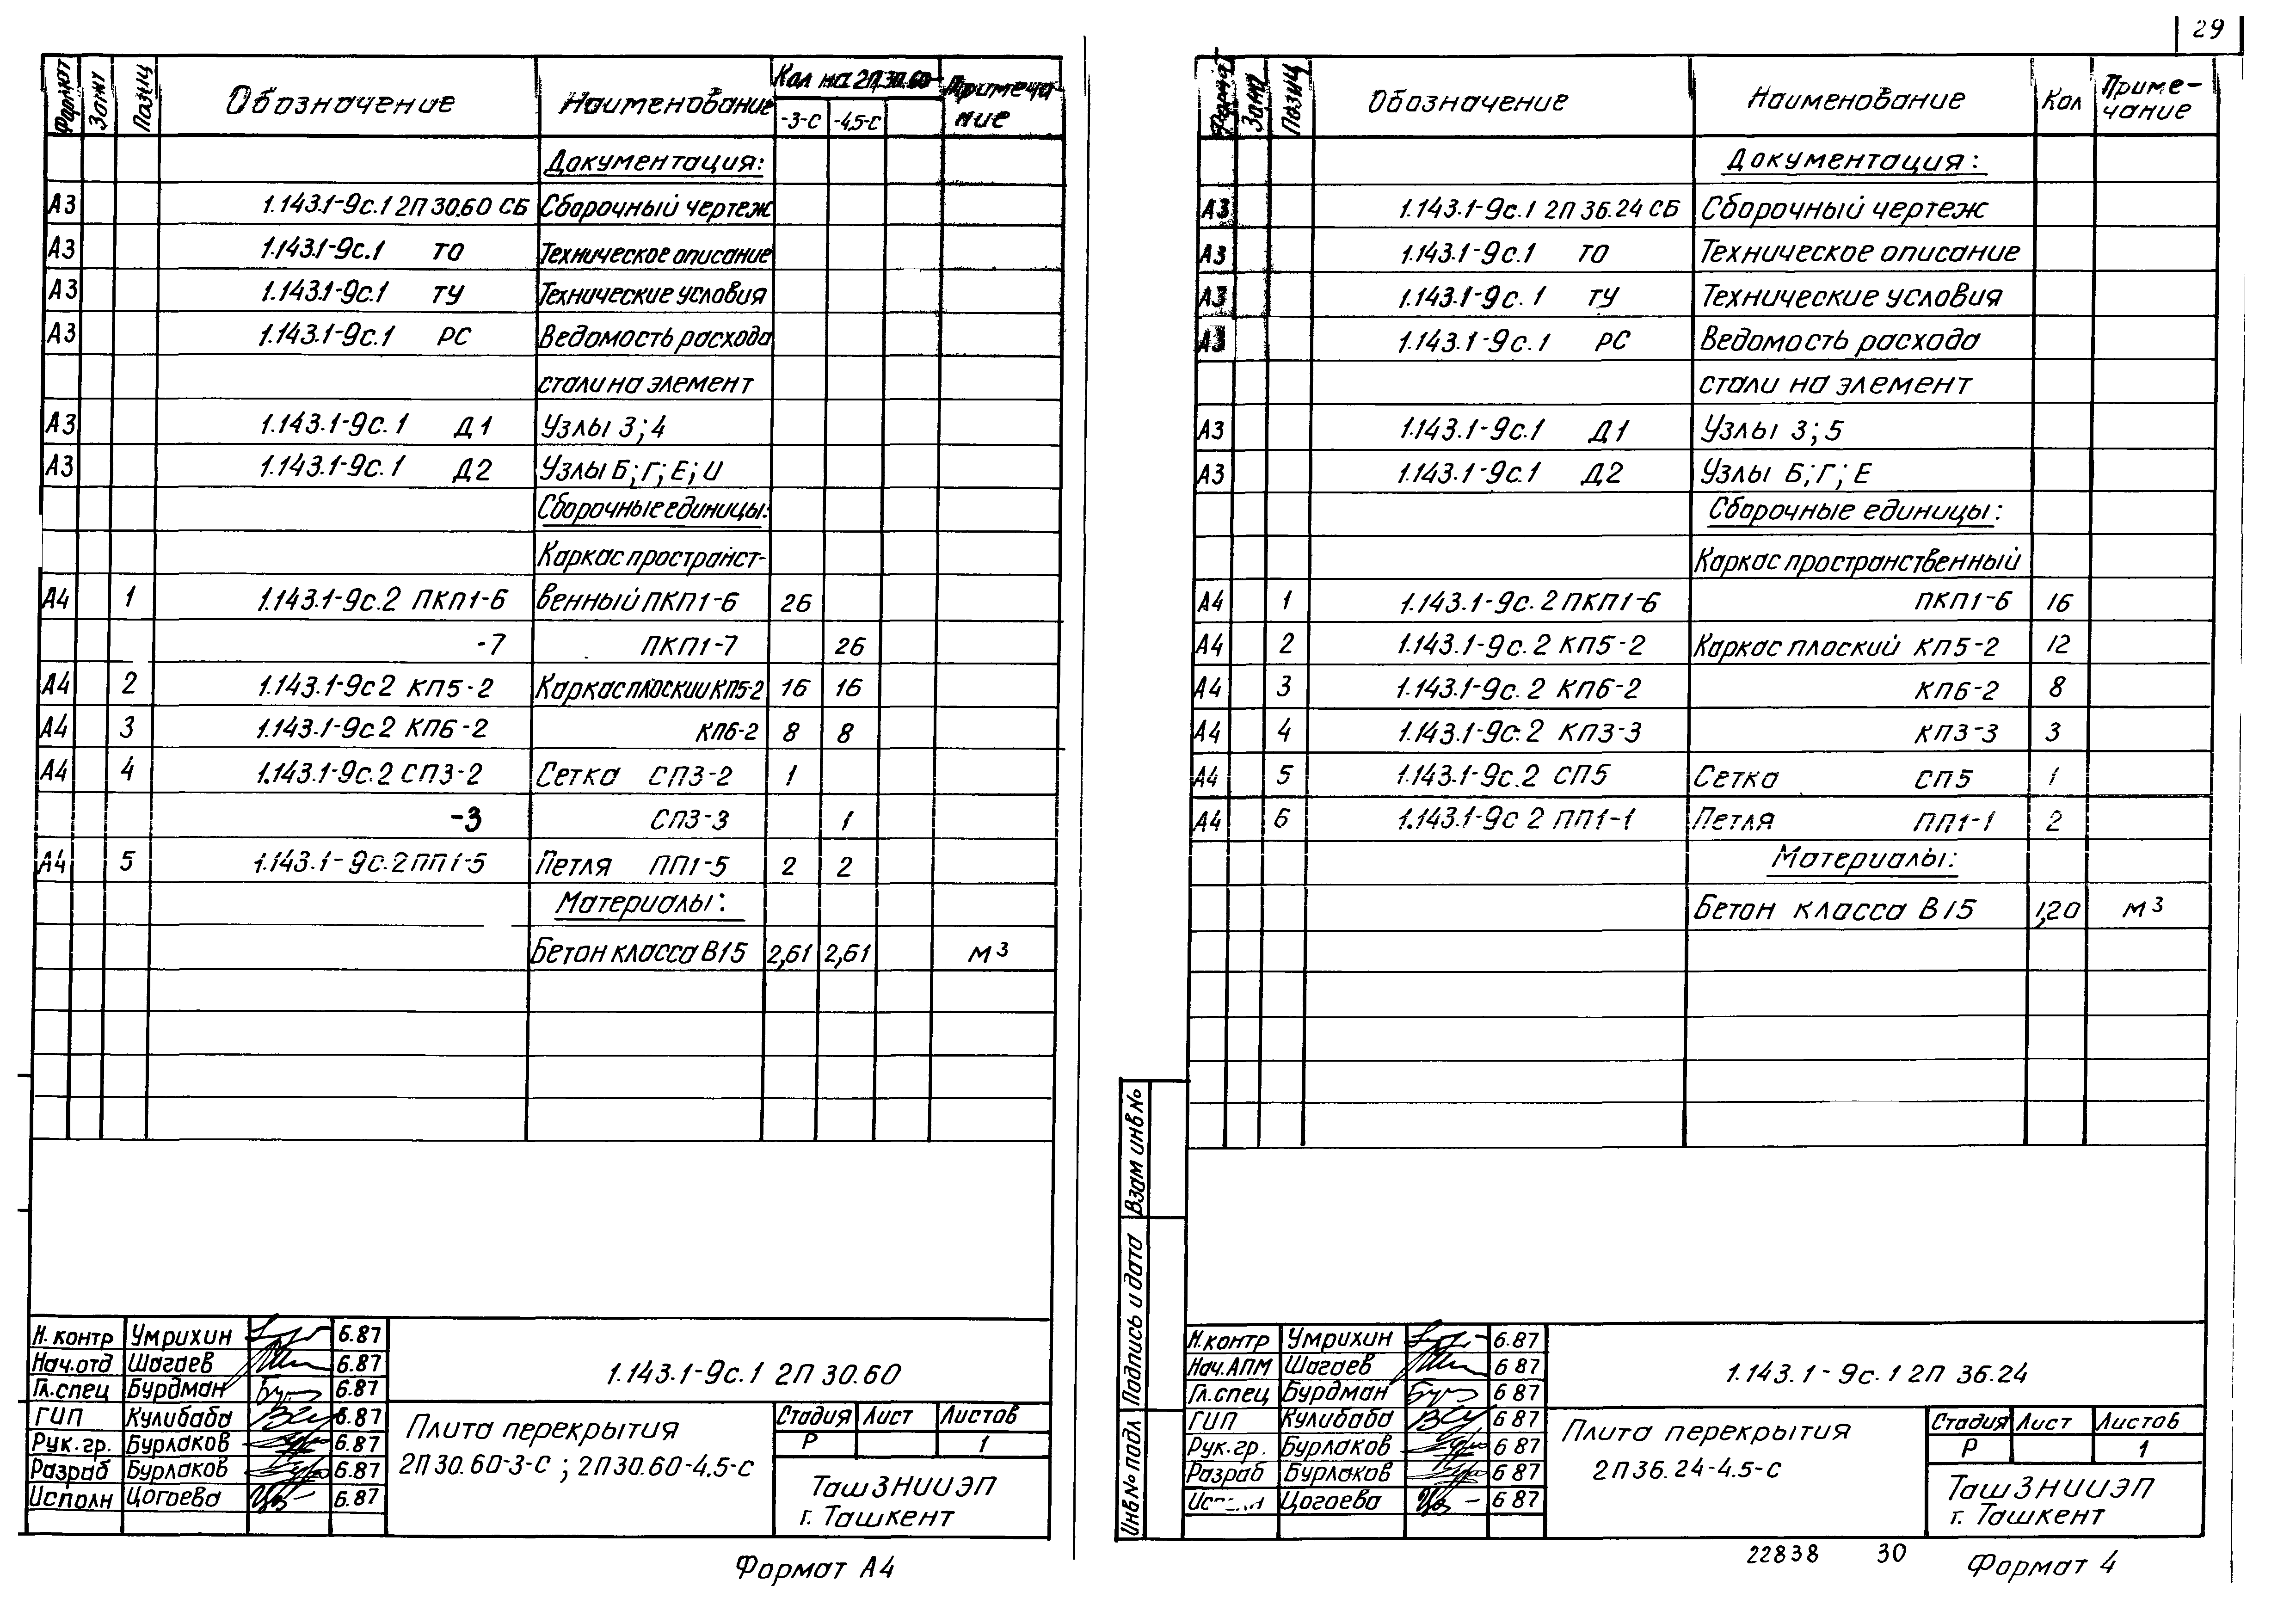 29
Формат Зоны Позиц Обозначение Наименование Кол на 2П30.60- Примеча
-3-С -4,5-С ние
Документация:
А3 1.143.1-9с.1 2П 30.60 СБ Сборочный чертеж
А3 1.143.1-9с.1 ТО Техническое описание
А3 1.143.1-9с.1 ТУ Технические условия
А3 1.143.1-9с.1 РС Ведомость расхода
стали на элемент
А3 1.143.1-9с.1 Д1 Узлы 3; 4
А3 1.143.1-9с.1 Д2 Узлы Б; Г; Е; И
Сборочные единицы:
Каркас пространст-
А4 1 1.143.1-9с.2 ПКП1-6 венный ПКП1-6 26
-7 ПКП1-7 26
А4 2 1.143.1-9с2 КП5-2 Каркас плоский КП5-2 16 16
А4 3 1.143.1-9с.2 КП6-2 КП6-2 8 8
А4 4 1.143.1-9с.2 СП3-2 Сетка СП3-2 1
-3 СП3-3 1
А4 5 1.143.1-9с.2 ПП1-5 Петля ПП1-5 2 2
Материалы:
Бетон класса В15 2,61 2,61 м3
Н.контр Умрихин 6.87
Нач.отд Шагаев 6.87
Гл.спец Бурдман 6.87
ГИП Кулибаба 6.87
Рук.гр. Бурлаков 6.87
Разраб Бурлаков 6.87
Исполн Цогоева 6.87
1.143.1-9с.1 2П 30.60
Плита перекрытия
2П30.60-3-С ; 2П30.60-4,5-С
Стадия Лист Листов
Р 1
ТашЗНИИЭП
г. Ташкент
Формат А4
Формат Зоны Позиц Обозначение Наименование Кол Приме-
чание
Документация:
А3 1.143.1-9с.1 2П 36.24 СБ Сборочный чертеж
А3 1.143.1-9с.1 ТО Техническое описание
А3 1.143.1-9с.1 ТУ Технические условия
А3 1.143.1-9с.1 РС Ведомость расхода
стали на элемент
А3 1.143.1-9с.1 Д1 Узлы 3; 5
А3 1.143.1-9с.1 Д2 Узлы Б; Г; Е
Сборочные единицы:
Каркас пространственный
А4 1 1.143.1-9с.2 ПКП1-6 ПКП1-6 16
А4 2 1.143.1-9с.2 КП5-2 Каркас плоский КП5-2 12
А4 3 1.143.1-9с.2 КП6-2 КП6-2 8
А4 4 1.143.1-9с.2 КП3-3 КП3-3 3
А4 5 1.143.1-9с.2 СП5 Сетка СП5 1
А4 6 1.143.1-9с 2 ПП1-1 Петля ПП1-1 2
Материалы:
Бетон класса В15 1,20 м3
Взам инв №
Подпись и дата
Инв № подл
Н.контр Умрихин 6.87
Нач.АПМ Шагаев 6 87
Гл.спец Бурдман 6 87
ГИП Кулибаба 6 87
Рук.гр. Бурлаков 6 87
Разраб Бурлаков 6 87
Цогоева 6 87
1.143.1-9с.1 2П 36.24
Плита перекрытия
2П36.24-4.5-С
Стадия Лист Листов
Р 1
ТашЗНИИЭП
г. Ташкент
22838 30
Формат 4